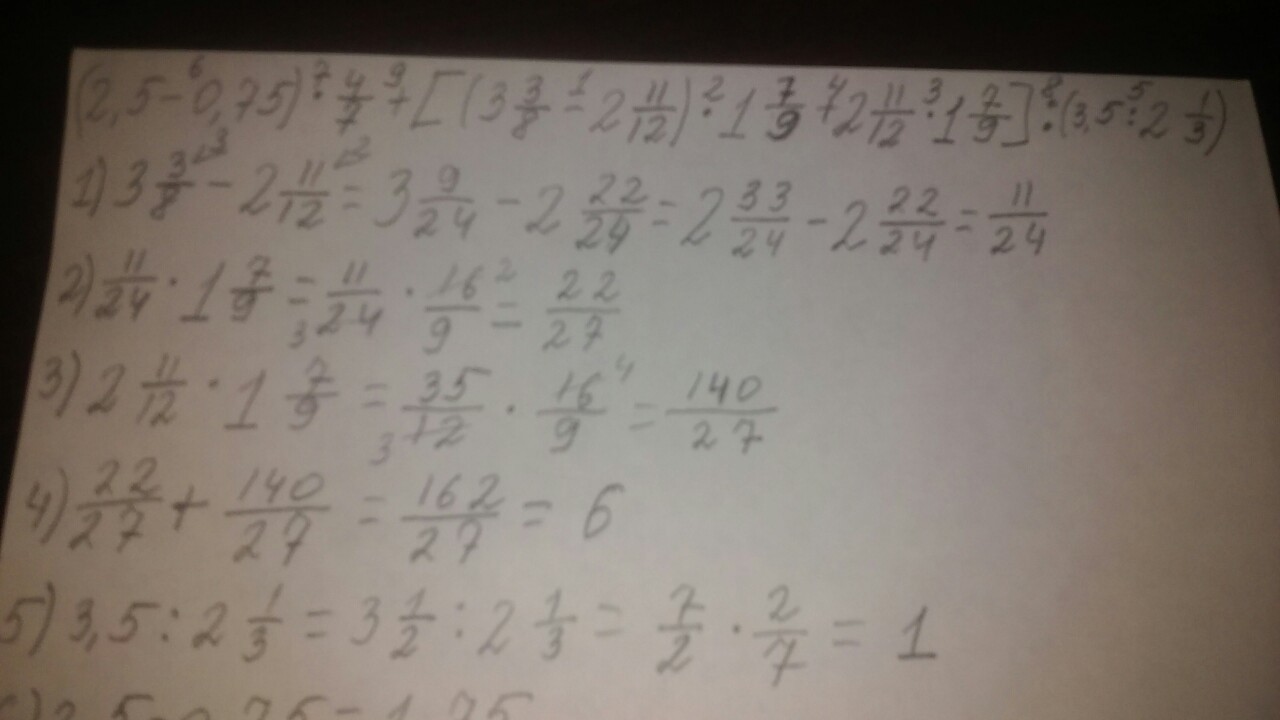 (2,5-0,75)·4/7+[(3 3/8-2 11/12)·1 7/9+2 11/12·1 7/9]:(3,5:2 1/3)
1) 3 3/8 - 2 11/12 = 3 9/24 - 2 22/24 = 2 33/24 - 2 22/24 = 11/24
2) 11/24 · 1 7/9 = 11/24 · 16/9 = 22/27
3) 2 11/12 · 1 7/9 = 35/12 · 16/9 = 140/27
4) 22/27 + 140/27 = 162/27 = 6
5) 3,5 : 2 1/3 = 3 1/2 : 2 1/3 = 7/2 · 2/7 = 1
6) 2,5-0,75=1,75